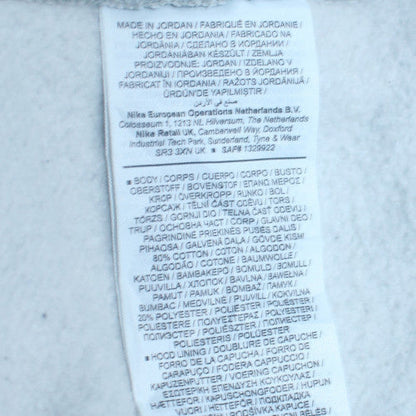 MADE IN JORDAN / FABRIQUÉ EN JORDANIE /
HECHO EN JORDANIA / FABRICADO NA
JORDÂNIA / СДЕЛАНО В ИОРДАНИИ /
JORDÁNIÁBAN KÉSZÜLT / ZEMLJA
PROIZVODNJE: JORDAN / IZDELANO V
JORDANIJI / ПРОИЗВЕДЕНО В ЙОРДАНИЯ /
FABRICAT ÎN IORDANIA / RAŽOTS JORDĀNIJĀ /
ÜRDÜN'DE YAPILMIŞTIR /
صنع في الأردن
Nike European Operations Netherlands B.V.
Colosseum 1, 1213 NL Hilversum, The Netherlands
Nike Retail UK, Camberwell Way, Doxford
Industrial Tech Park, Sunderland, Tyne & Wear
SR3 3XN UK ■ SAP# 1329922
■ BODY / CORPS / CUERPO / CORPO / BUSTO /
OBERSTOFF / BOVENSTOF / ΕΠΑΝΩ ΜΕΡΟΣ /
KROP / OVERKROPP / RUNKO / BOL /
КОРСАЖ / TĚLNÍ ČÁST ODĚVU / TORS /
TÖRZS / GORNJI DIO / TELNÁ ČASŤ ODEVU /
TRUP / ОСНОВНА ЧАСТ / CORP / GLAVNI DEO /
PAGRINDINĖ PRIEKINĖS PUSĖS DALIS /
PIHAOSA / GALVENĀ DAĻA / GÖVDE KISMI
80% COTTON / COTON / ALGODÓN /
ALGODÃO / COTONE / BAUMWOLLE /
KATOEN / ΒΑΜΒΑΚΕΡΟ / BOMULD / BOMULL /
PUUVILLA / ХЛОПОК / BAVLNA / BAWEŁNA /
PAMUT / PAMUK / BOMBAŽ / ПАМУК /
BUMBAC / MEDVILNĖ / PUUVILL / KOKVILNA
20% POLYESTER / POLYESTER / POLIÉSTER /
POLIESTERE / ΠΟΛΥΕΣΤΕΡΑΣ / POLYESTERI /
ПОЛИЭСТЕР / POLIESTER / ПОЛИЕСТЕР /
POLIESTERIS / POLÜESTER
■ HOOD LINING / DOUBLURE DE CAPUCHE /
FORRO DE LA CAPUCHA / FORRO DE
CARAPUÇO / FODERA CAPPUCCIO /
KAPUZENFUTTER / VOERING CAPUCHON /
ΕΣΩΤΕΡΙΚΗ ΕΠΕΝΔΥΣΗ ΚΟΥΚΟΥΛΑΣ /
HÆTTEFOR / KAPUCHONGSFODER / HUPUN
HETTEFÔR /
VUORI / KAPÜŞON